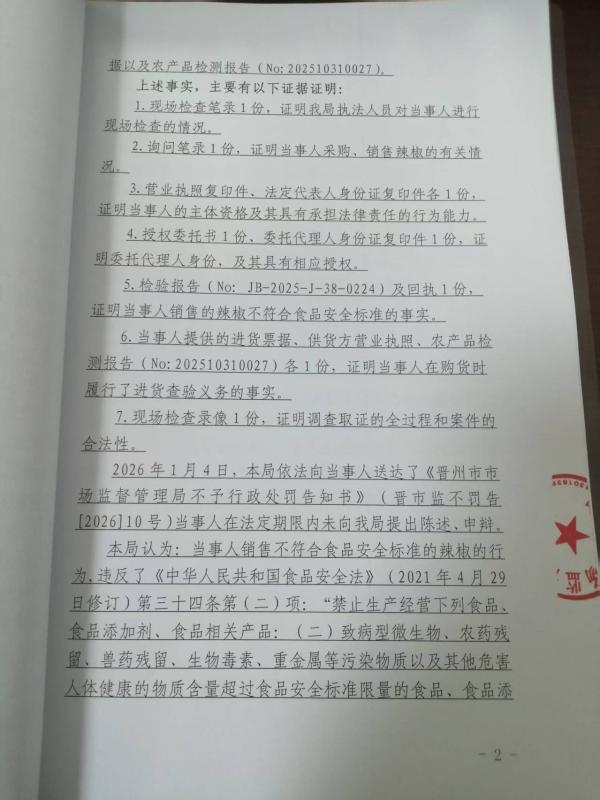 据以及农产品检测报告（No:202510310027)。
上述事实，主要有以下证据证明：
1.现场检查笔录1份，证明我局执法人员对当事人进行
现场检查的情况。
2.询问笔录1份，证明当事人采购、销售辣椒的有关情
况。
3.营业执照复印件、法定代表人身份证复印件各1份，
证明当事人的主体资格及其具有承担法律责任的行为能力。
4.授权委托书1份、委托代理人身份证复印件1份，证
明委托代理人身份，及其具有相应授权。
5.检验报告（No: JB-2025-J-38-0224)及回执1份，
证明当事人销售的辣椒不符合食品安全标准的事实。
6.当事人提供的进货票据、供货方营业执照、农产品检
测报告（No:202510310027）各1份，证明当事人在购货时
履行了进货查验义务的事实。
7.现场检查录像1份，证明调查取证的全过程和案件的
合法性。
2026年1月4日，本局依法向当事人送达了《晋州市市
场监督管理局不予行政处罚告知书》（晋市监不罚告
[2026]10号)当事人在法定期限内未向我局提出陈述、申辩。
本局认为：当事人销售不符合食品安全标准的辣椒的行
为,违反了《中华人民共和国食品安全法》（2021年4月29
日修订）第三十四条第（二）项：“禁止生产经营下列食品、
食品添加剂、食品相关产品：（二）致病型微生物、农药残
留、兽药残留、生物毒素、重金属等污染物质以及其他危害
人体健康的物质含量超过食品安全标准限量的食品、食品添
- 2 -